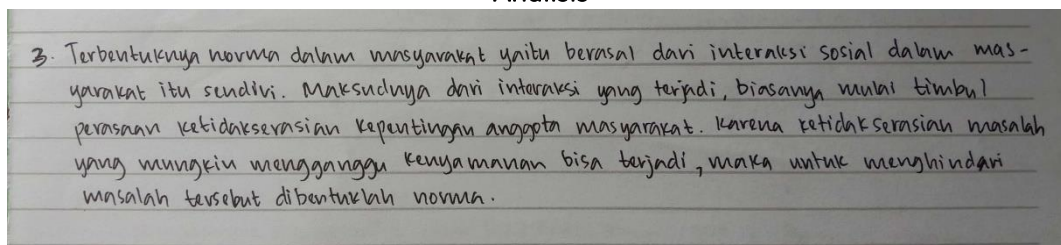 3. Terbentuknya norma dalam masyarakat yaitu berasal dari interaksi sosial dalam mas-
yarakat itu sendiri. Maksudnya dari interaksi yang terjadi, biasanya mulai timbul
perasaan ketidakserasian kepentingan anggota masyarakat. Karena ketidakserasian masalah
yang mungkin mengganggu kenyamanan bisa terjadi, maka untuk menghindari
masalah tersebut dibentuklah norma.